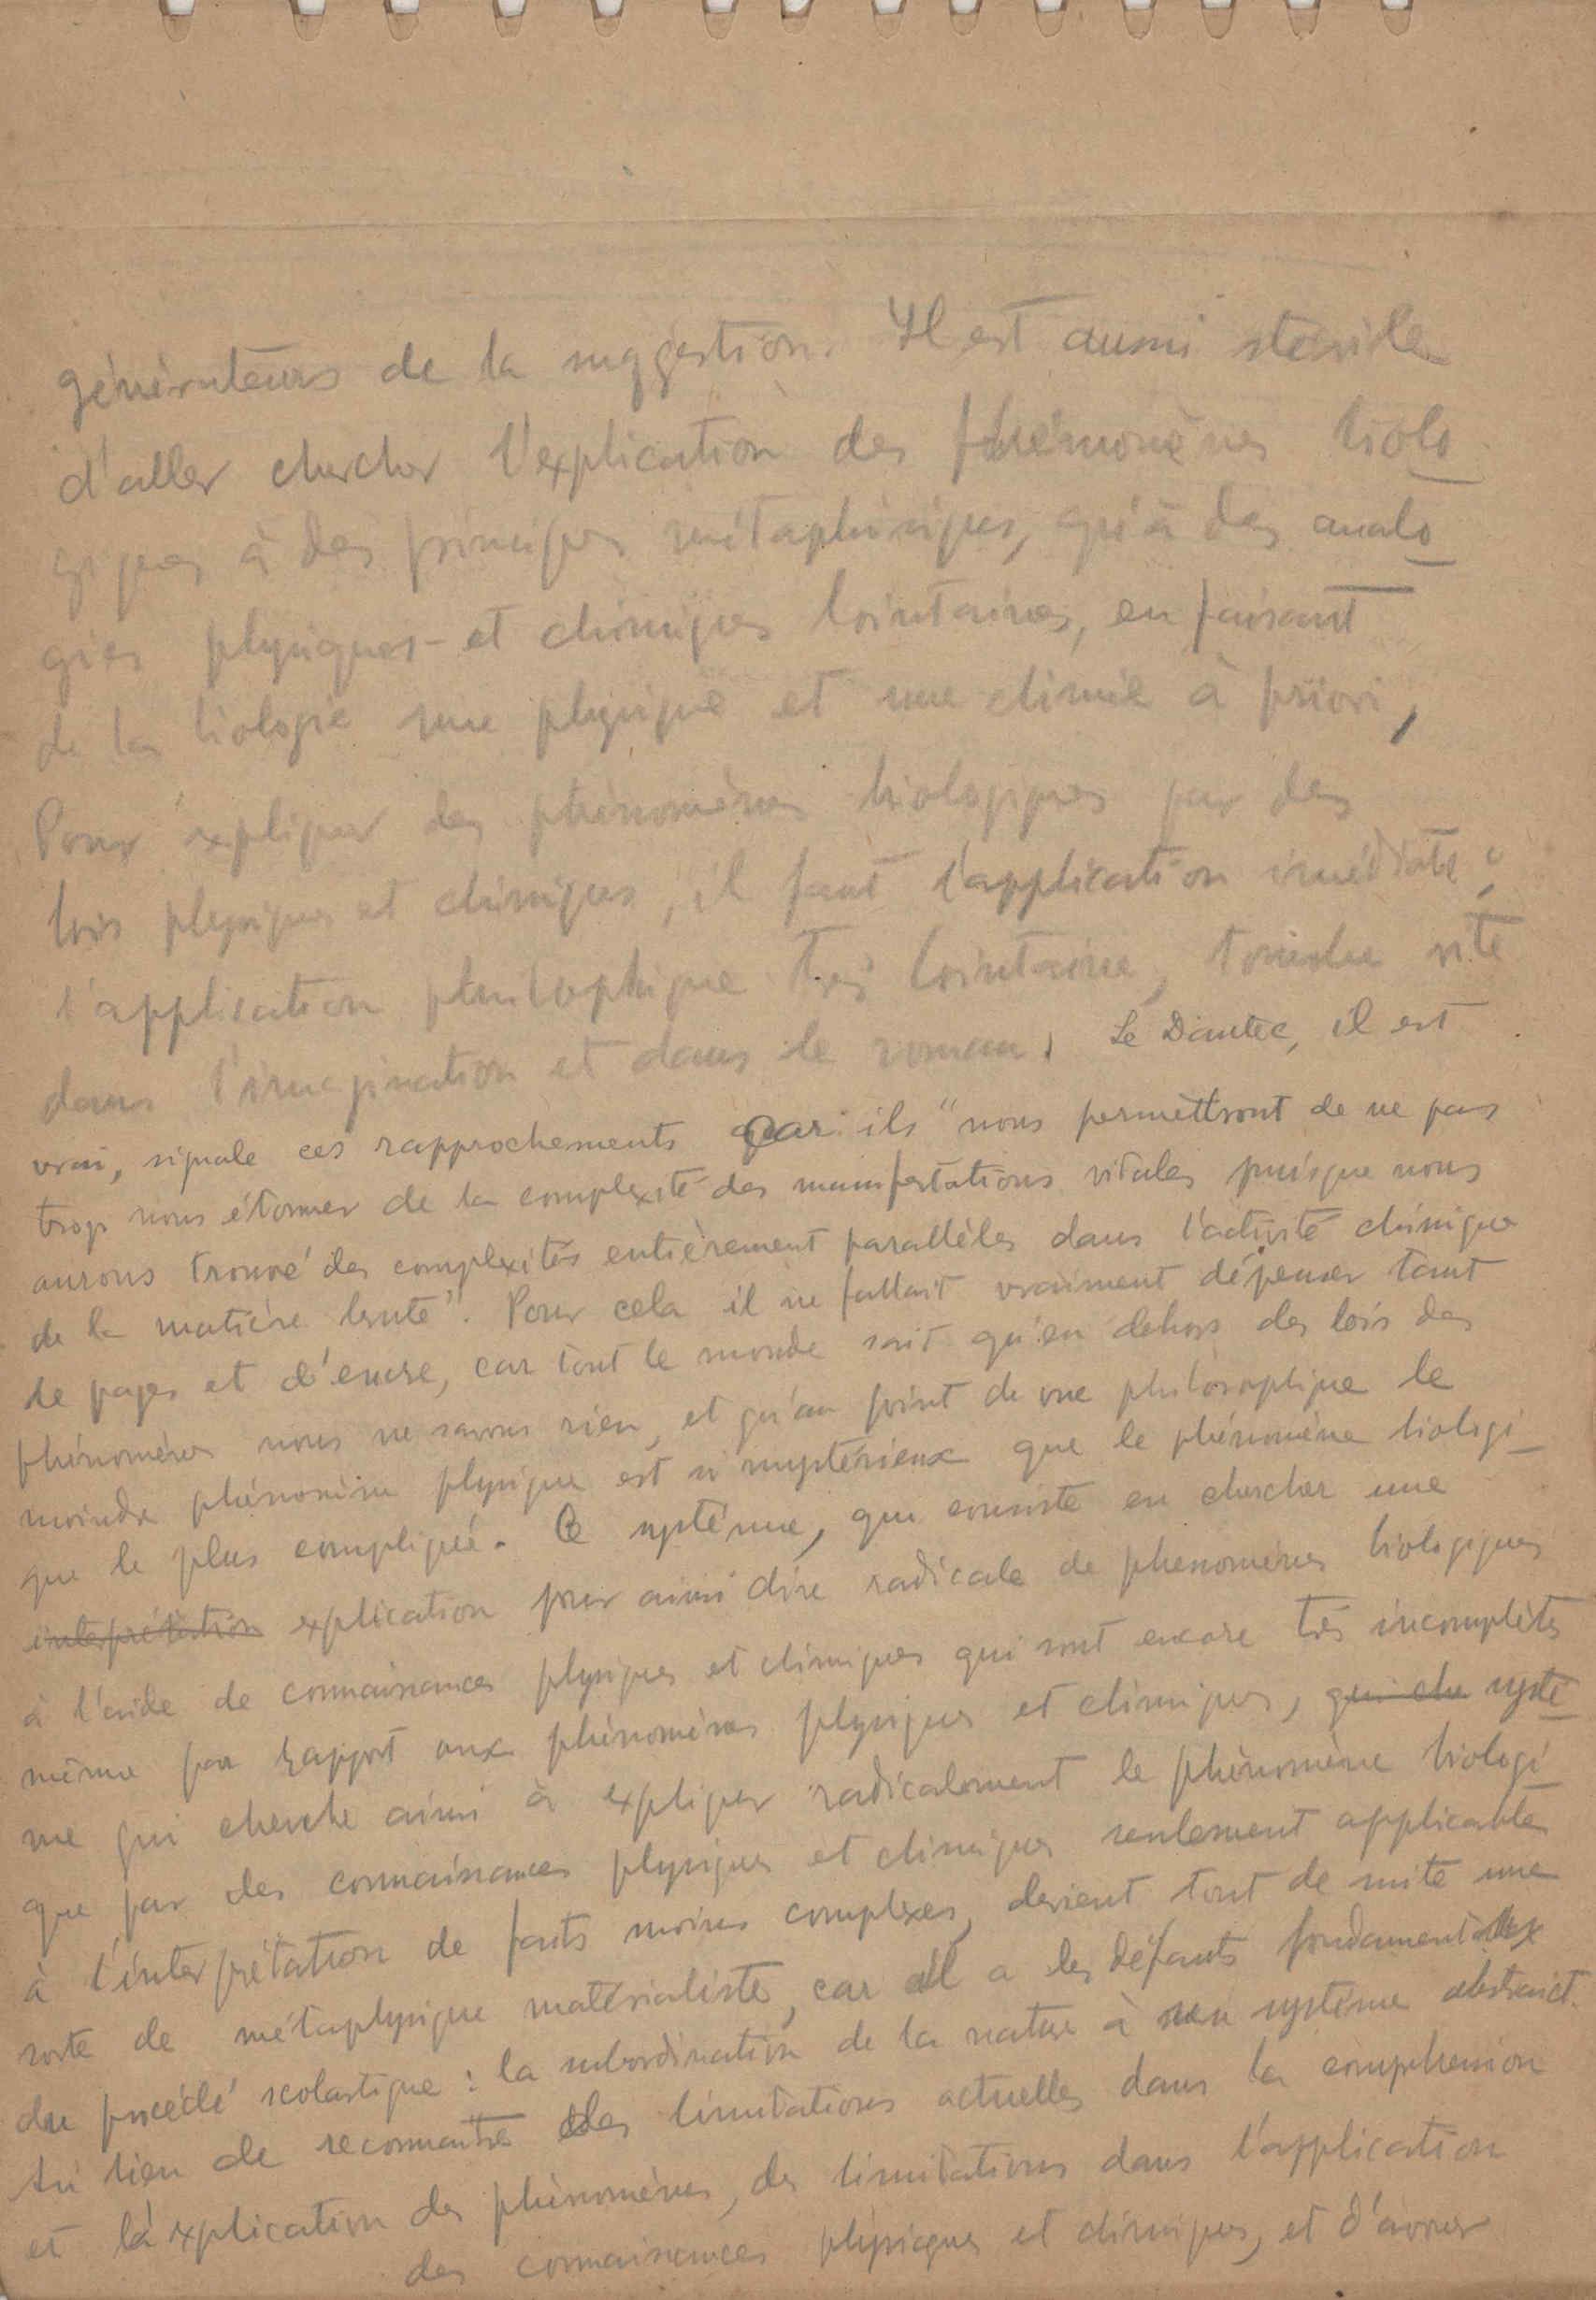 générateurs de la suggestion. Il est aussi stérile
d'aller chercher l'explication des phénomènes biolo
giques à des principes métaphisiques, qu'à des analo
gies physiques et chimiques lointaines, en faisant
de la biologie une physique et une chimie à priori,
Pour expliquer des phénomènes biologiques par des
lois physiques et chimiques, il faut l'application imédiate;
l'application philosophique très lointaine, tombe vite
dans l'imagination et dans le roman. Le Dantec, il est
vrai, signale ces rapprochements car ils "nous permettront de ne pas
trop nous étonner de la complexité des manifestations vitales puisque nous
aurons trouvé des complexités entièrement parallèles dans l'activité chimique
de la matière brute". Pour cela il ne fallait vraiment dépenser tant
de pages et d'encre, car tout le monde sait qu'en dehors des lois des
phénomènes nous ne savons rien, et qu'au point de vue philosophique le
moindre phénomène physique est si mystérieux que le phénomène biologi
que le plus compliqué. Ce système, qui consiste en chercher une
interprétation explication pour ainsi dire radicale de phenomènes biologiques
à l'aide de connaissances physiques et chimiques qui sont encore très incomplètes
même par rapport aux phénomènes physiques et chimiques, qui che systè
me qui cherche ainsi à expliquer radicalement le phénomène biologi
que par des connaissances physiques et chimiques seulement applicables
à l'interprétation de faits moins complexes, devient tout de suite une
sorte de métaphysique matérialiste, car il a les défauts fondamentaux
du procédé scolastique : la subordination de la nature à un système abstraict.
Au lieu de reconnaitre des limitations actuelles dans la comprhension
et l'explication des phénomènes, des limitations dans l'application
des connaissances physiques et chimiques, et d'avouer